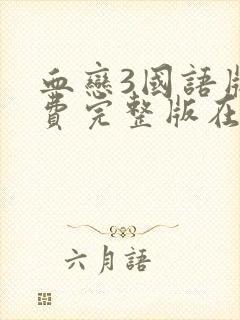 血戀3國語版
費完整版在
六月語